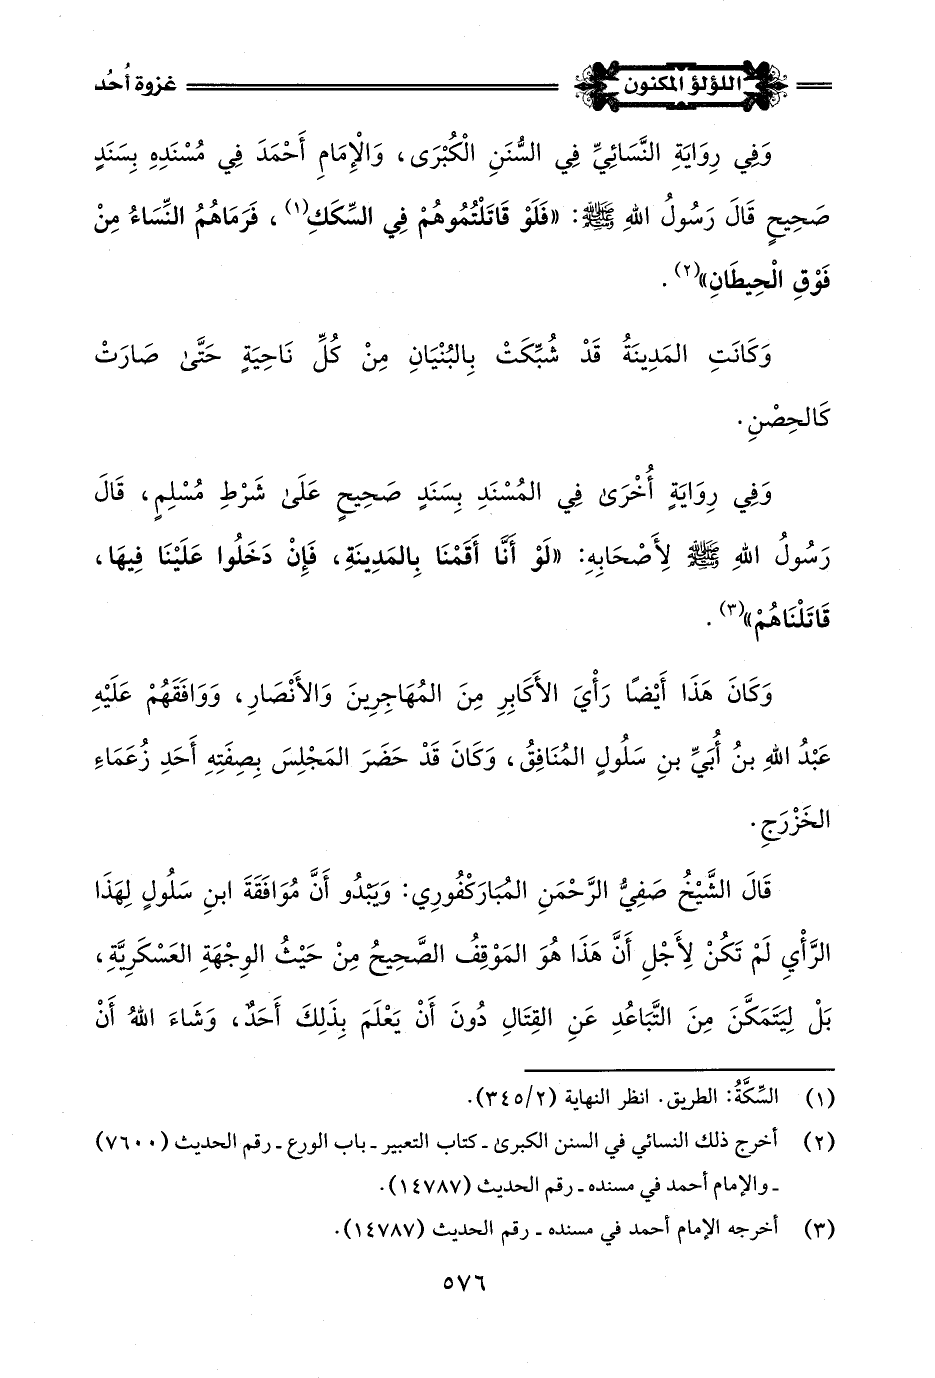 اللؤلؤ المكنون
غزوة أُحُد
وَفِي رِوَايَةِ النَّسَائِيِّ فِي السُّنَنِ الْكُبْرَى، وَالْإِمَامِ أَحْمَدَ فِي مُسْنَدِهِ بِسَنَدٍ
صَحِيحٍ قَالَ رَسُولُ اللهِ ﷺ: «فَلَوْ قَاتَلْتُمُوهُمْ فِي السِّكَكِ(١)، فَرَمَاهُمُ النِّسَاءُ مِنْ
فَوْقِ الْحِيطَانِ»(٢).
وَكَانَتِ المَدِينَةُ قَدْ شُبِّكَتْ بِالبُنْيَانِ مِنْ كُلِّ نَاحِيَةٍ حَتَّىٰ صَارَتْ
كَالحِصْنِ.
وَفِي رِوَايَةٍ أُخْرَىٰ فِي المُسْنَدِ بِسَنَدٍ صَحِيحٍ عَلَىٰ شَرْطِ مُسْلِمٍ، قَالَ
رَسُولُ اللهِ ﷺ لِأَصْحَابِهِ: «لَوْ أَنَّا أَقَمْنَا بِالمَدِينَةِ، فَإِنْ دَخَلُوا عَلَيْنَا فِيهَا،
قَاتَلْنَاهُمْ»(٣).
وَكَانَ هَذَا أَيْضًا رَأْيَ الأَكَابِرِ مِنَ المُهَاجِرِينَ وَالأَنْصَارِ، وَوَافَقَهُمْ عَلَيْهِ
عَبْدُ اللهِ بنُ أُبَيِّ بنِ سَلُولٍ المُنَافِقُ، وَكَانَ قَدْ حَضَرَ المَجْلِسَ بِصِفَتِهِ أَحَدِ زُعَمَاءِ
الخَزْرَجِ.
قَالَ الشَّيْخُ صَفِيُّ الرَّحْمَنِ المُبَارَكْفُورِي: وَيَبْدُو أَنَّ مُوَافَقَةَ ابنِ سَلُولٍ لِهَذَا
الرَّأْيِ لَمْ تَكُنْ لِأَجْلِ أَنَّ هَذَا هُوَ المَوْقِفُ الصَّحِيحُ مِنْ حَيْثُ الوِجْهَةِ العَسْكَرِيَّةِ،
بَلْ لِيَتَمَكَّنَ مِنَ التَّبَاعُدِ عَنِ القِتَالِ دُونَ أَنْ يَعْلَمَ بِذَلِكَ أَحَدٌ، وَشَاءَ اللهُ أَنْ
(١) السِّكَّةُ: الطريق. انظر النهاية (٣٤٥/٢).
(٢) أخرج ذلك النسائي في السنن الكبرىٰ ـ كتاب التعبير ـ باب الورع ـ رقم الحديث (٧٦٠٠)
ـ والإمام أحمد في مسنده ـ رقم الحديث (١٤٧٨٧).
(٣) أخرجه الإمام أحمد في مسنده ـ رقم الحديث (١٤٧٨٧).
٥٧٦